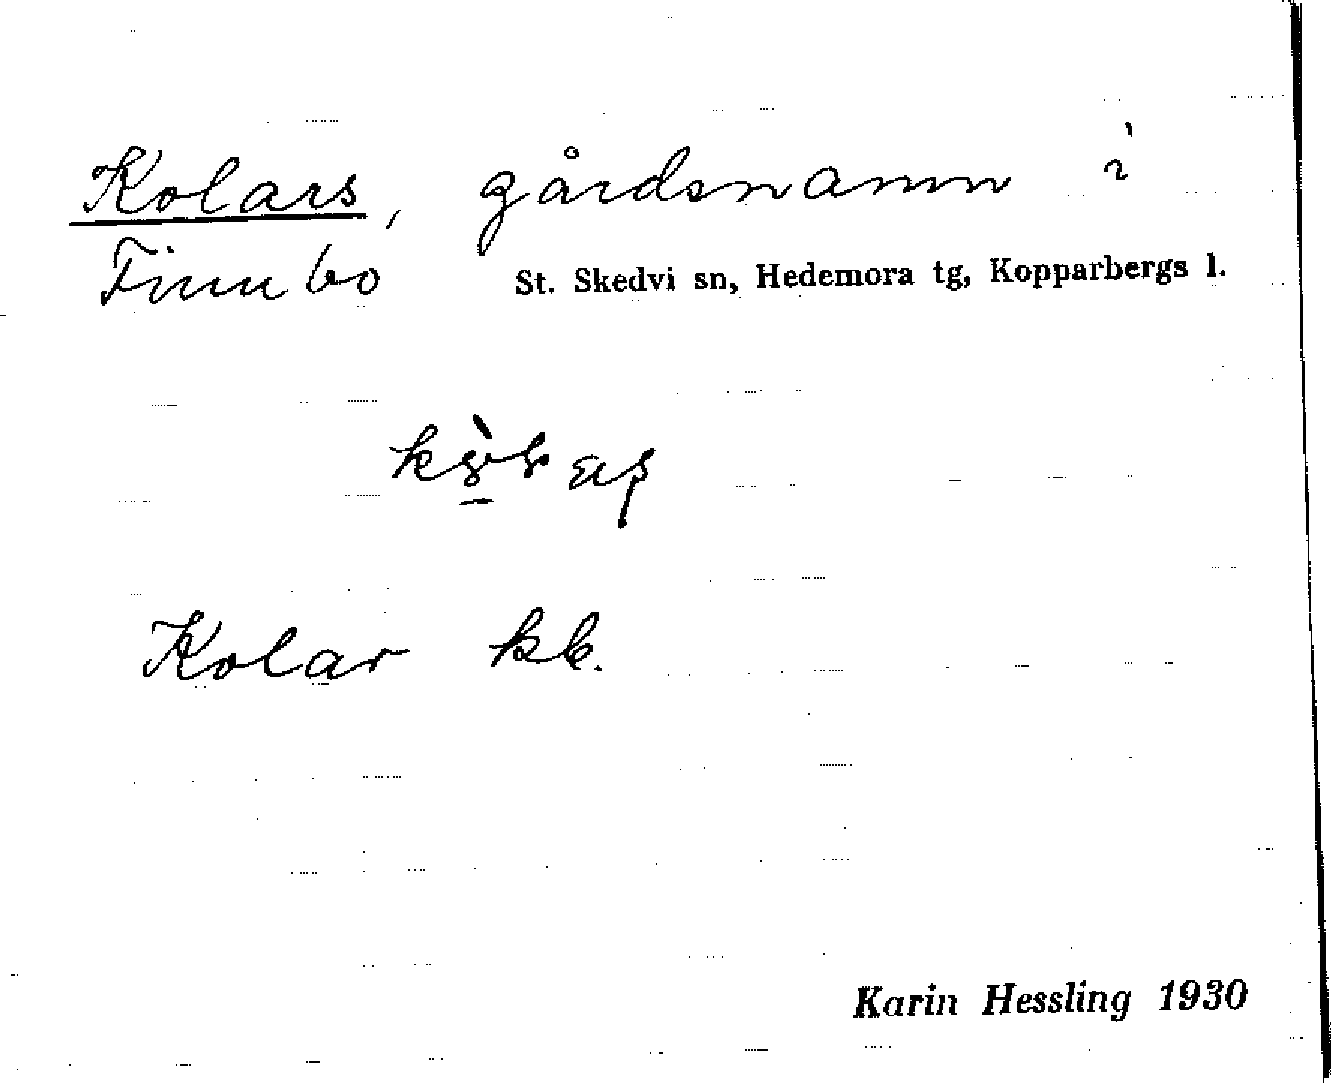 Kolars, gårdsnamn i
Finnbo St. Skedvi sn, Hedemora tg, Kopparbergs l.
Kolar kk.
Karin Hessling 1930